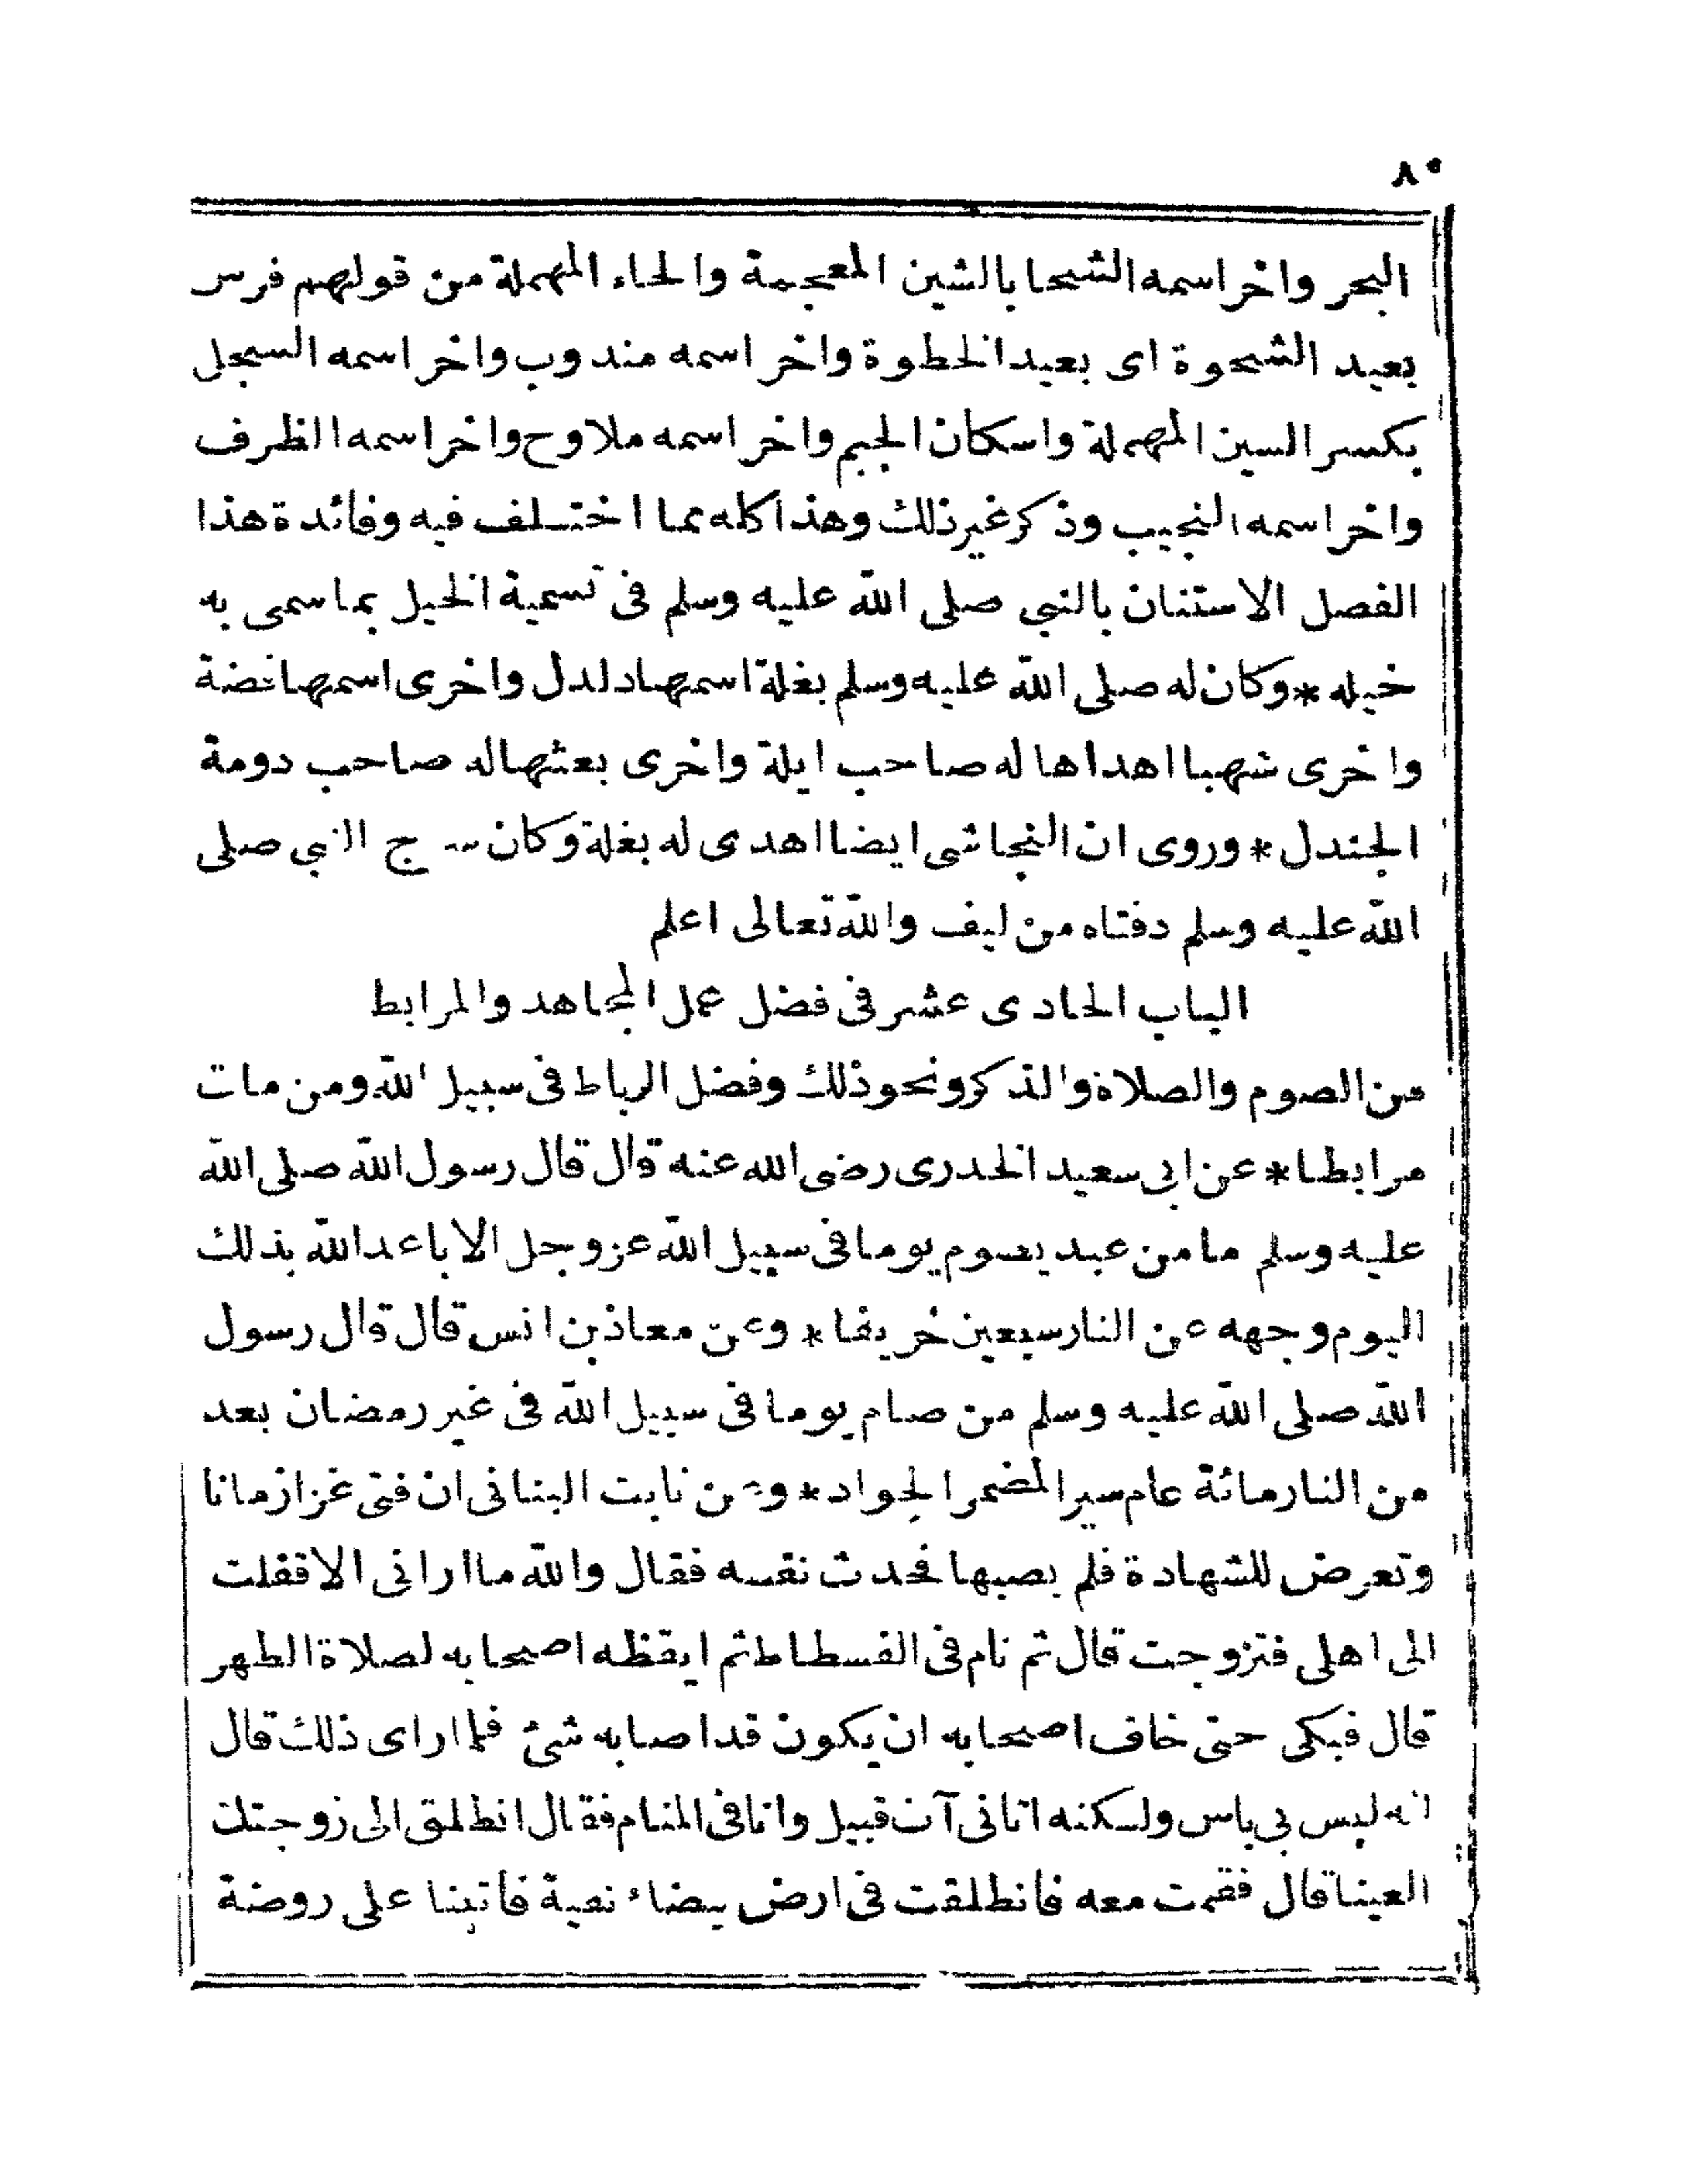 ٨٠
البحر واخر اسمه الشحا بالشين المعجمة والحاء المهملة من قولهم فرس
بعيد الشحوة اى بعيد الخطوة واخر اسمه مندوب واخر اسمه السجل
بكسر السين المهملة واسكان الجيم واخر اسمه ملاوح واخر اسمه الظرف
واخر اسمه النجيب وذكر غير ذلك وهذا كله مما اختلف فيه وفائدة هذا
الفصل الاستنان بالنبي صلى الله عليه وسلم فى تسمية الخيل بما سمى به
خيله * وكان له صلى الله عليه وسلم بغلة اسمها دلدل واخرى اسمها فضة
واخرى شهبا اهداها له صاحب ايلة واخرى بعثها له صاحب دومة
الجندل * وروى ان النجاشى ايضا اهدى له بغلة وكان النبي صلى
الله عليه وسلم دفتاه من ليف والله تعالى اعلم
الباب الحادى عشر فى فضل عمل المجاهد والمرابط
من الصوم والصلاة والذكر ونحو ذلك وفضل الرباط فى سبيل الله ومن مات
مرابطا * عن ابى سعيد الخدرى رضى الله عنه قال قال رسول الله صلى الله
عليه وسلم ما من عبد يصوم يوما فى سبيل الله عز وجل الا باعد الله بذلك
اليوم وجهه عن النار سبعين خريفا * وعن معاذ بن انس قال قال رسول
الله صلى الله عليه وسلم من صام يوما فى سبيل الله فى غير رمضان بعد
من النار مائة عام سير المضمر الجواد * وعن ثابت البنانى ان فتى غزا زمانا
وتعرض للشهادة فلم يصبها فحدث نفسه فقال والله ما ارانى الا قفلت
الى اهلى فتزوجت قال ثم نام فى الفسطاط ثم ايقظه اصحابه لصلاة الظهر
قال فبكى حتى خاف اصحابه ان يكون قد اصابه شئ فلما راى ذلك قال
انه ليس بى باس ولكنه اتانى آت قبيل وانا فى المنام فقال انطلق الى زوجتك
العينا قال فقمت معه فانطلقت فى ارض بيضاء نقية فاتينا على روضة